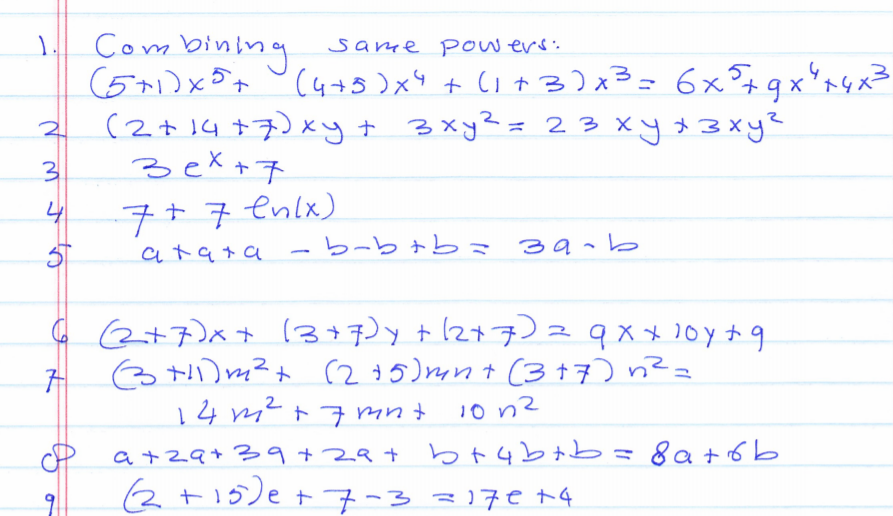 1. Combining same powers:
(5+1)x⁵+ (4+5)x⁴ + (1+3)x³ = 6x⁵+9x⁴+4x³
2 (2+14+7)xy + 3xy² = 23xy+3xy²
3 3eˣ+7
4 7+7 ln(x)
5 a+a+a -b-b+b = 3a-b
6 (2+7)x+ (3+7)y+(2+7) = 9x+10y+9
7 (3+11)m²+ (2+5)mn+(3+7)n² =
14m²+7mn+ 10n²
8 a+2a+3a+2a+ b+4b+b = 8a+6b
9 (2+15)e+7-3 =17e+4